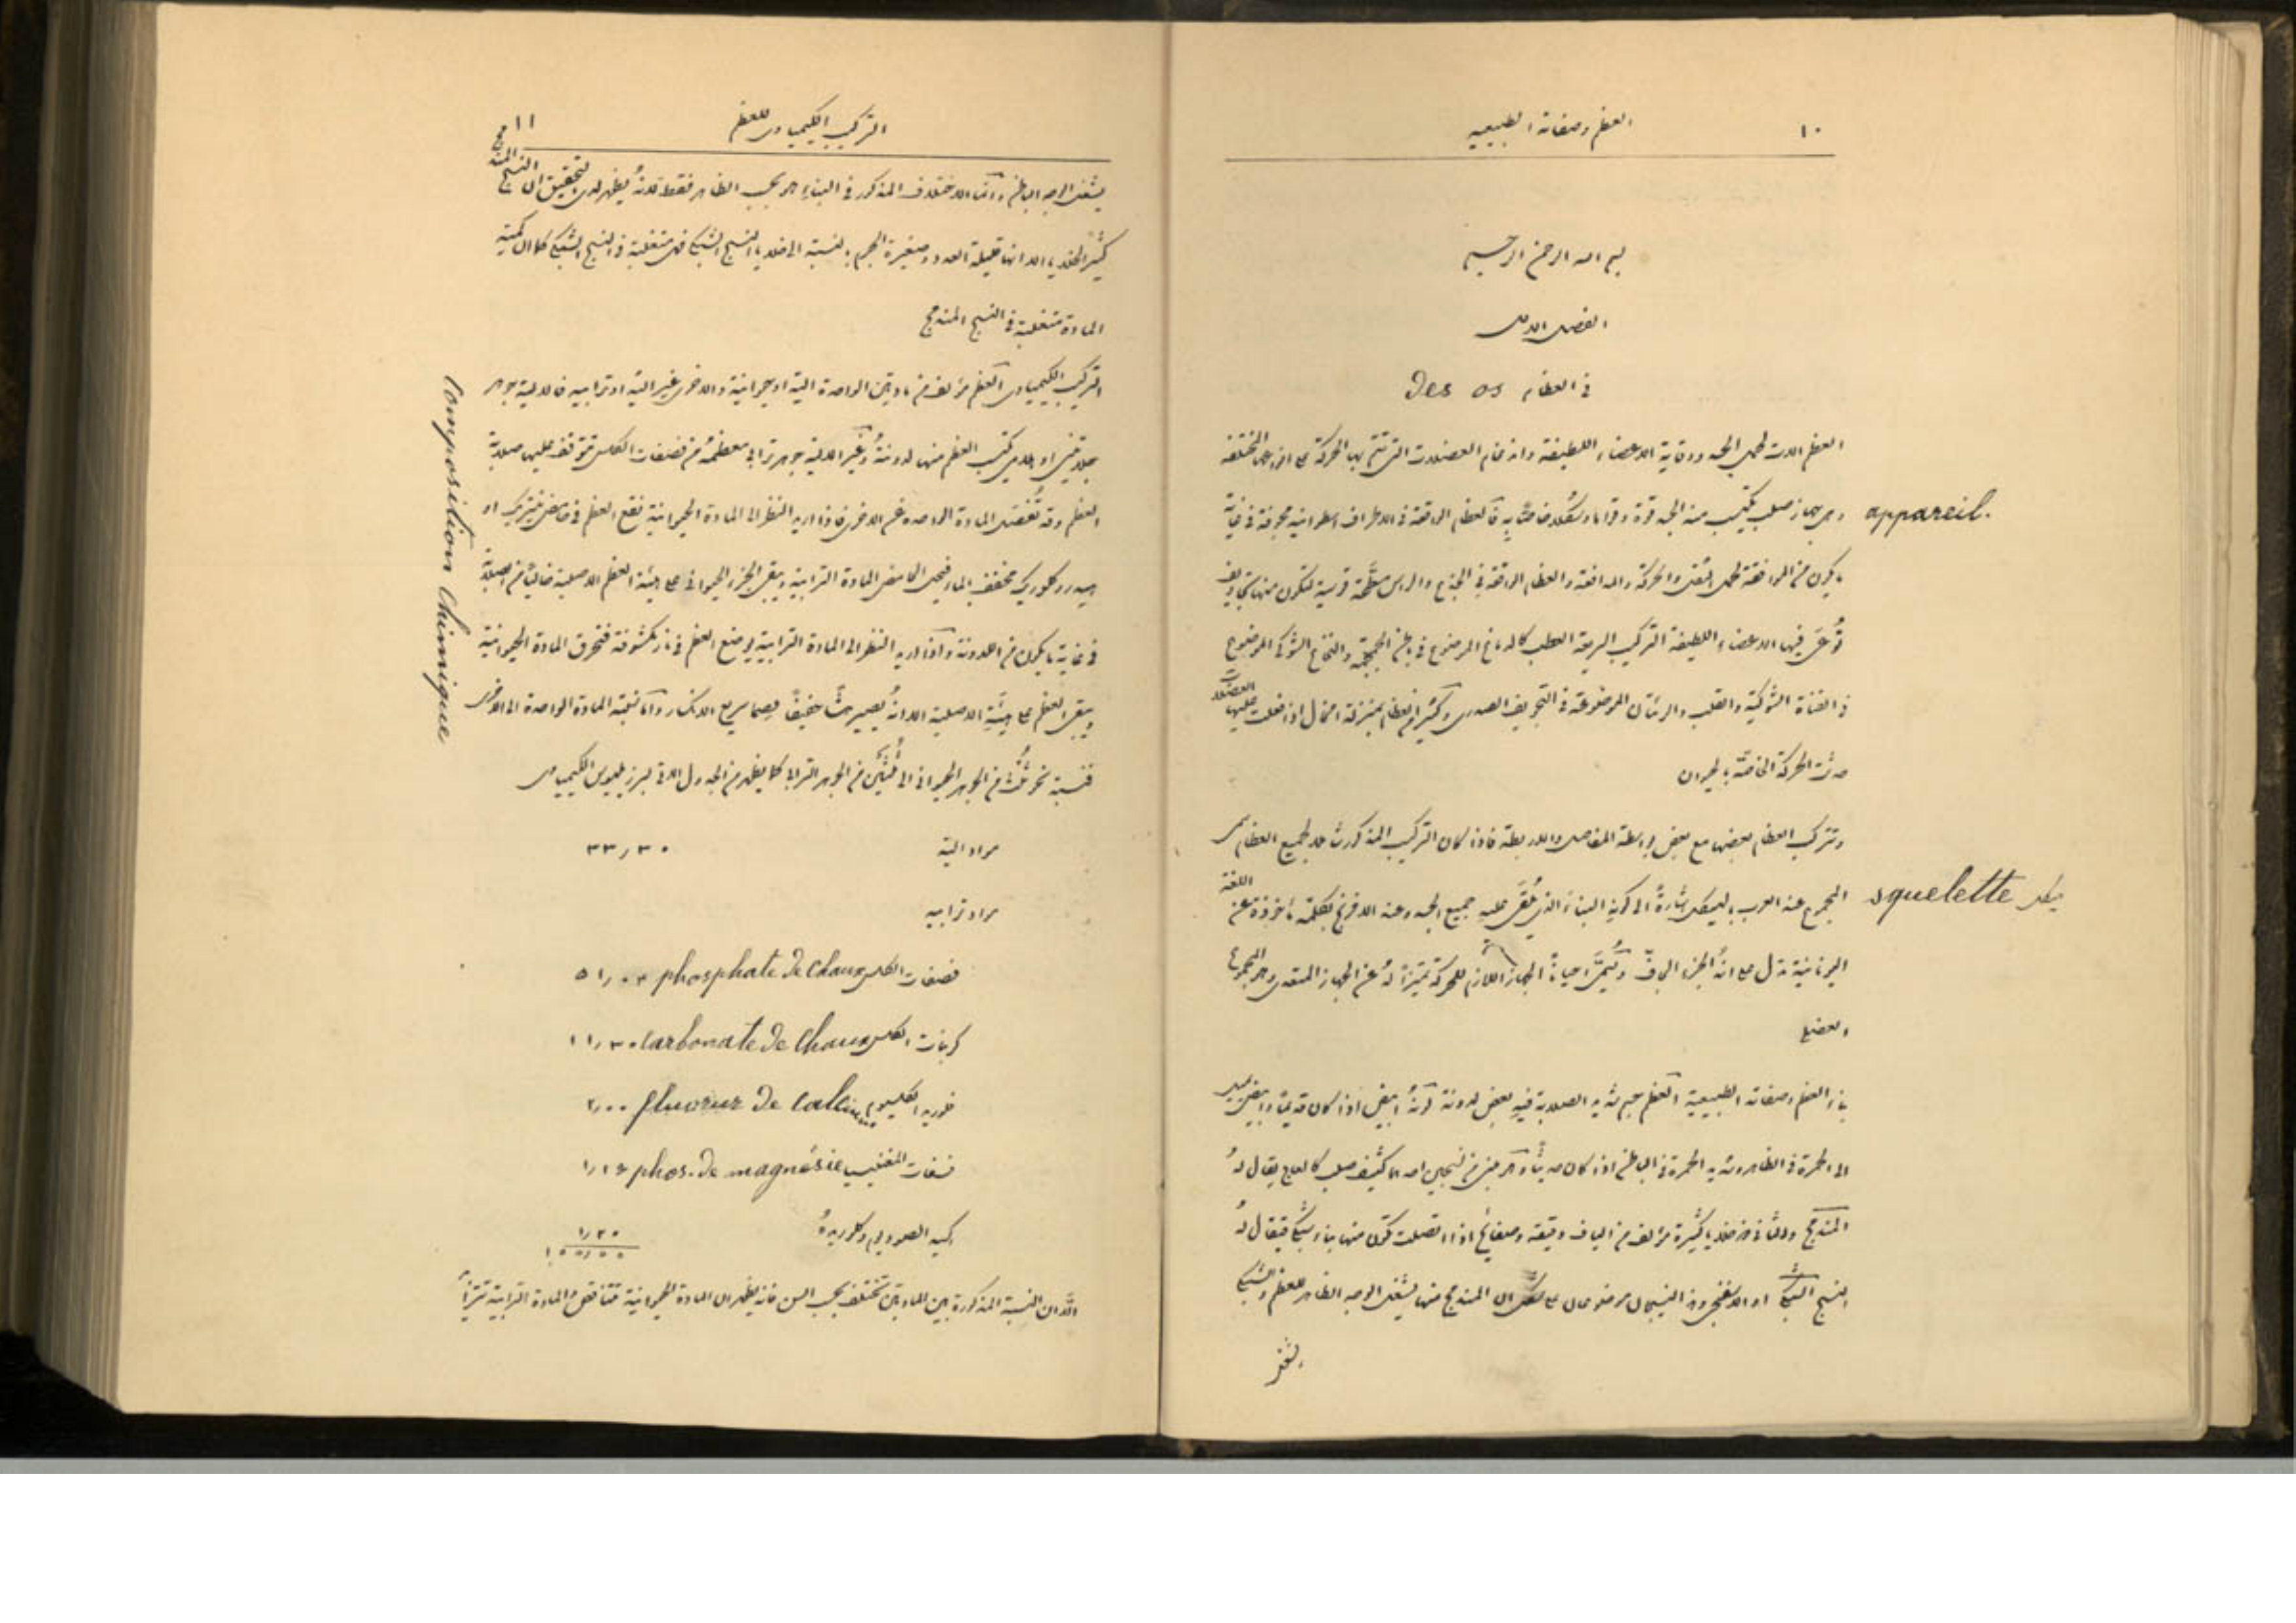 ١٠
العظم وصفاته الطبيعيه
بسم الله الرحمن الرحيم
الفصل الاول
في العظام Des os
العظم الات لحمل الجسد ووقاية الاعضاء اللطيفة واتمام العضلات التي تتم بها الحركة على انواعها المختلفة
وهي جهاز صلب يكتسب منه الجسد قوة وقواما وشكلا خاصا به فالعظام الواقعة في الاطراف اسطوانية مجوفة في غاية
appareil.
ما يكون من الموافقة لحمل الثقل والحركة والمدافعة والعظام الواقعة في الجذع والراس مسطحة قوسية لتكون منها تجاويف
توعى فيها الاعضاء اللطيفة التركيب السريعة العطب كالدماغ الموضوع في باطن الجمجمة والنخاع الشوكي الموضوع
في القناة الشوكية والقلب والرئتان الموضوعة في التجويف الصدري وكثير من العظام بمنزلة امخال اذا فعلت عليها العضلات
حدثت الحركة الخاصة بالحيوان
وتتركب العظام بعضها مع بعض بواسطة المفاصل والاربطة فاذا كان التركيب المذكور شاملا لجميع العظام سمي
المجموع عند العرب بالهيكل اشارة الى كونه البناء الذي يلقى عليه جميع الجسد وعند الافرنج بكلمة ماخوذة عن اللغة
هيكل squelette
اليونانية تدل على انه الجزء الجاف وسمي احيانا الجهاز اللازم للحركة تمييزا له عن الجهاز المتعدي وهو المجموع
العضلي
بناء العظم وصفاته الطبيعية العظم جسم شديد الصلابة فيه بعض لدونة لونه ابيض اذا كان قديما وابيض يميل
الى الحمرة في الظاهر وشديد الحمرة في الباطن اذا كان حديثا وهو مبني من نسيجين احدهما كثيف صلب كالعاج يقال له
المندمج والثاني ذو خلايا كثيرة مؤلف من الياف دقيقة وصفائح اذا اتصلت تكون منها بناء شبكي فيقال له
النسيج الشبكي او الاسفنجي وهذان النسيجان موضوعان على شكل ان المندمج منها يشغل الوجه الظاهر للعظم والشبكي
يشغل
١١
التركيب الكيمياوي للعظم
يشغل الوجه الباطن وانما الاختلاف المذكور في البناء هو بحسب الظاهر فقط لانه يظهر لدى التحقيق ان النسيج المندمج
كثير الخلايا الا انها قليلة العدد وصغيرة الحجم بالنسبة الى خلايا النسيج الشبكي فهي متغلبة في النسيج الشبكي كما ان كمية
المادة متغلبة في النسيج المندمج
التركيب الكيمياوي العظم مؤلف من مادتين الواحدة الية او حيوانية والاخرى غير الية او ترابيه فالالية جوهر
composition chimique
جلاتيني او هلامي يكتسب العظم منها لدونته وغير الالية جوهر ترابي معظمه من فصفات الكلس تتوقف عليها صلابة
العظم وقد تفصل المادة الواحدة عن الاخرى فاذا اريد النظر الى المادة الحيوانية نقع العظم في حامض نيتريك او
هيدروكلوريك مخفف بالماء فيحل الحامض المادة الترابية ويبقى الجزء الحيواني على هيئة العظم الاصلية خاليا من الصلابة
في غاية ما يكون من اللدونة واذا اريد النظر الى المادة الترابية يوضع العظم في نار مكشوفة فتحرق المادة الحيوانية
ويبقى العظم على هيئته الاصلية الا انه يصير هشا خفيفا سريع الانكسار واما نسبة المادة الواحدة الى الاخرى
فنسبة نحو ثلث من الجوهر الحيواني الى ثلثين من الجوهر الترابي كما يظهر من الجدول الاتي لبرزيليوس الكيمياوي
مواد الية ٣٣٫٣٠
مواد ترابيه
فصفات الكلس phosphate de chaux ٥١٫٠٤
كربنات الكلس carbonate de chaux ١١٫٣٠
فلوريد الكلسيوم fluorur de calcium ٢٫٠٠
فصفات المغنيسيا phos. de magnésie ١٫١٦
اكسيد الصوديوم وكلوريده ١٫٢٠
١٠٠٫٠٠
الا ان النسبة المذكورة بين المادتين تختلف بحسب السن فانه يظهر ان المادة الحيوانية تتناقص والمادة الترابية تتزايد